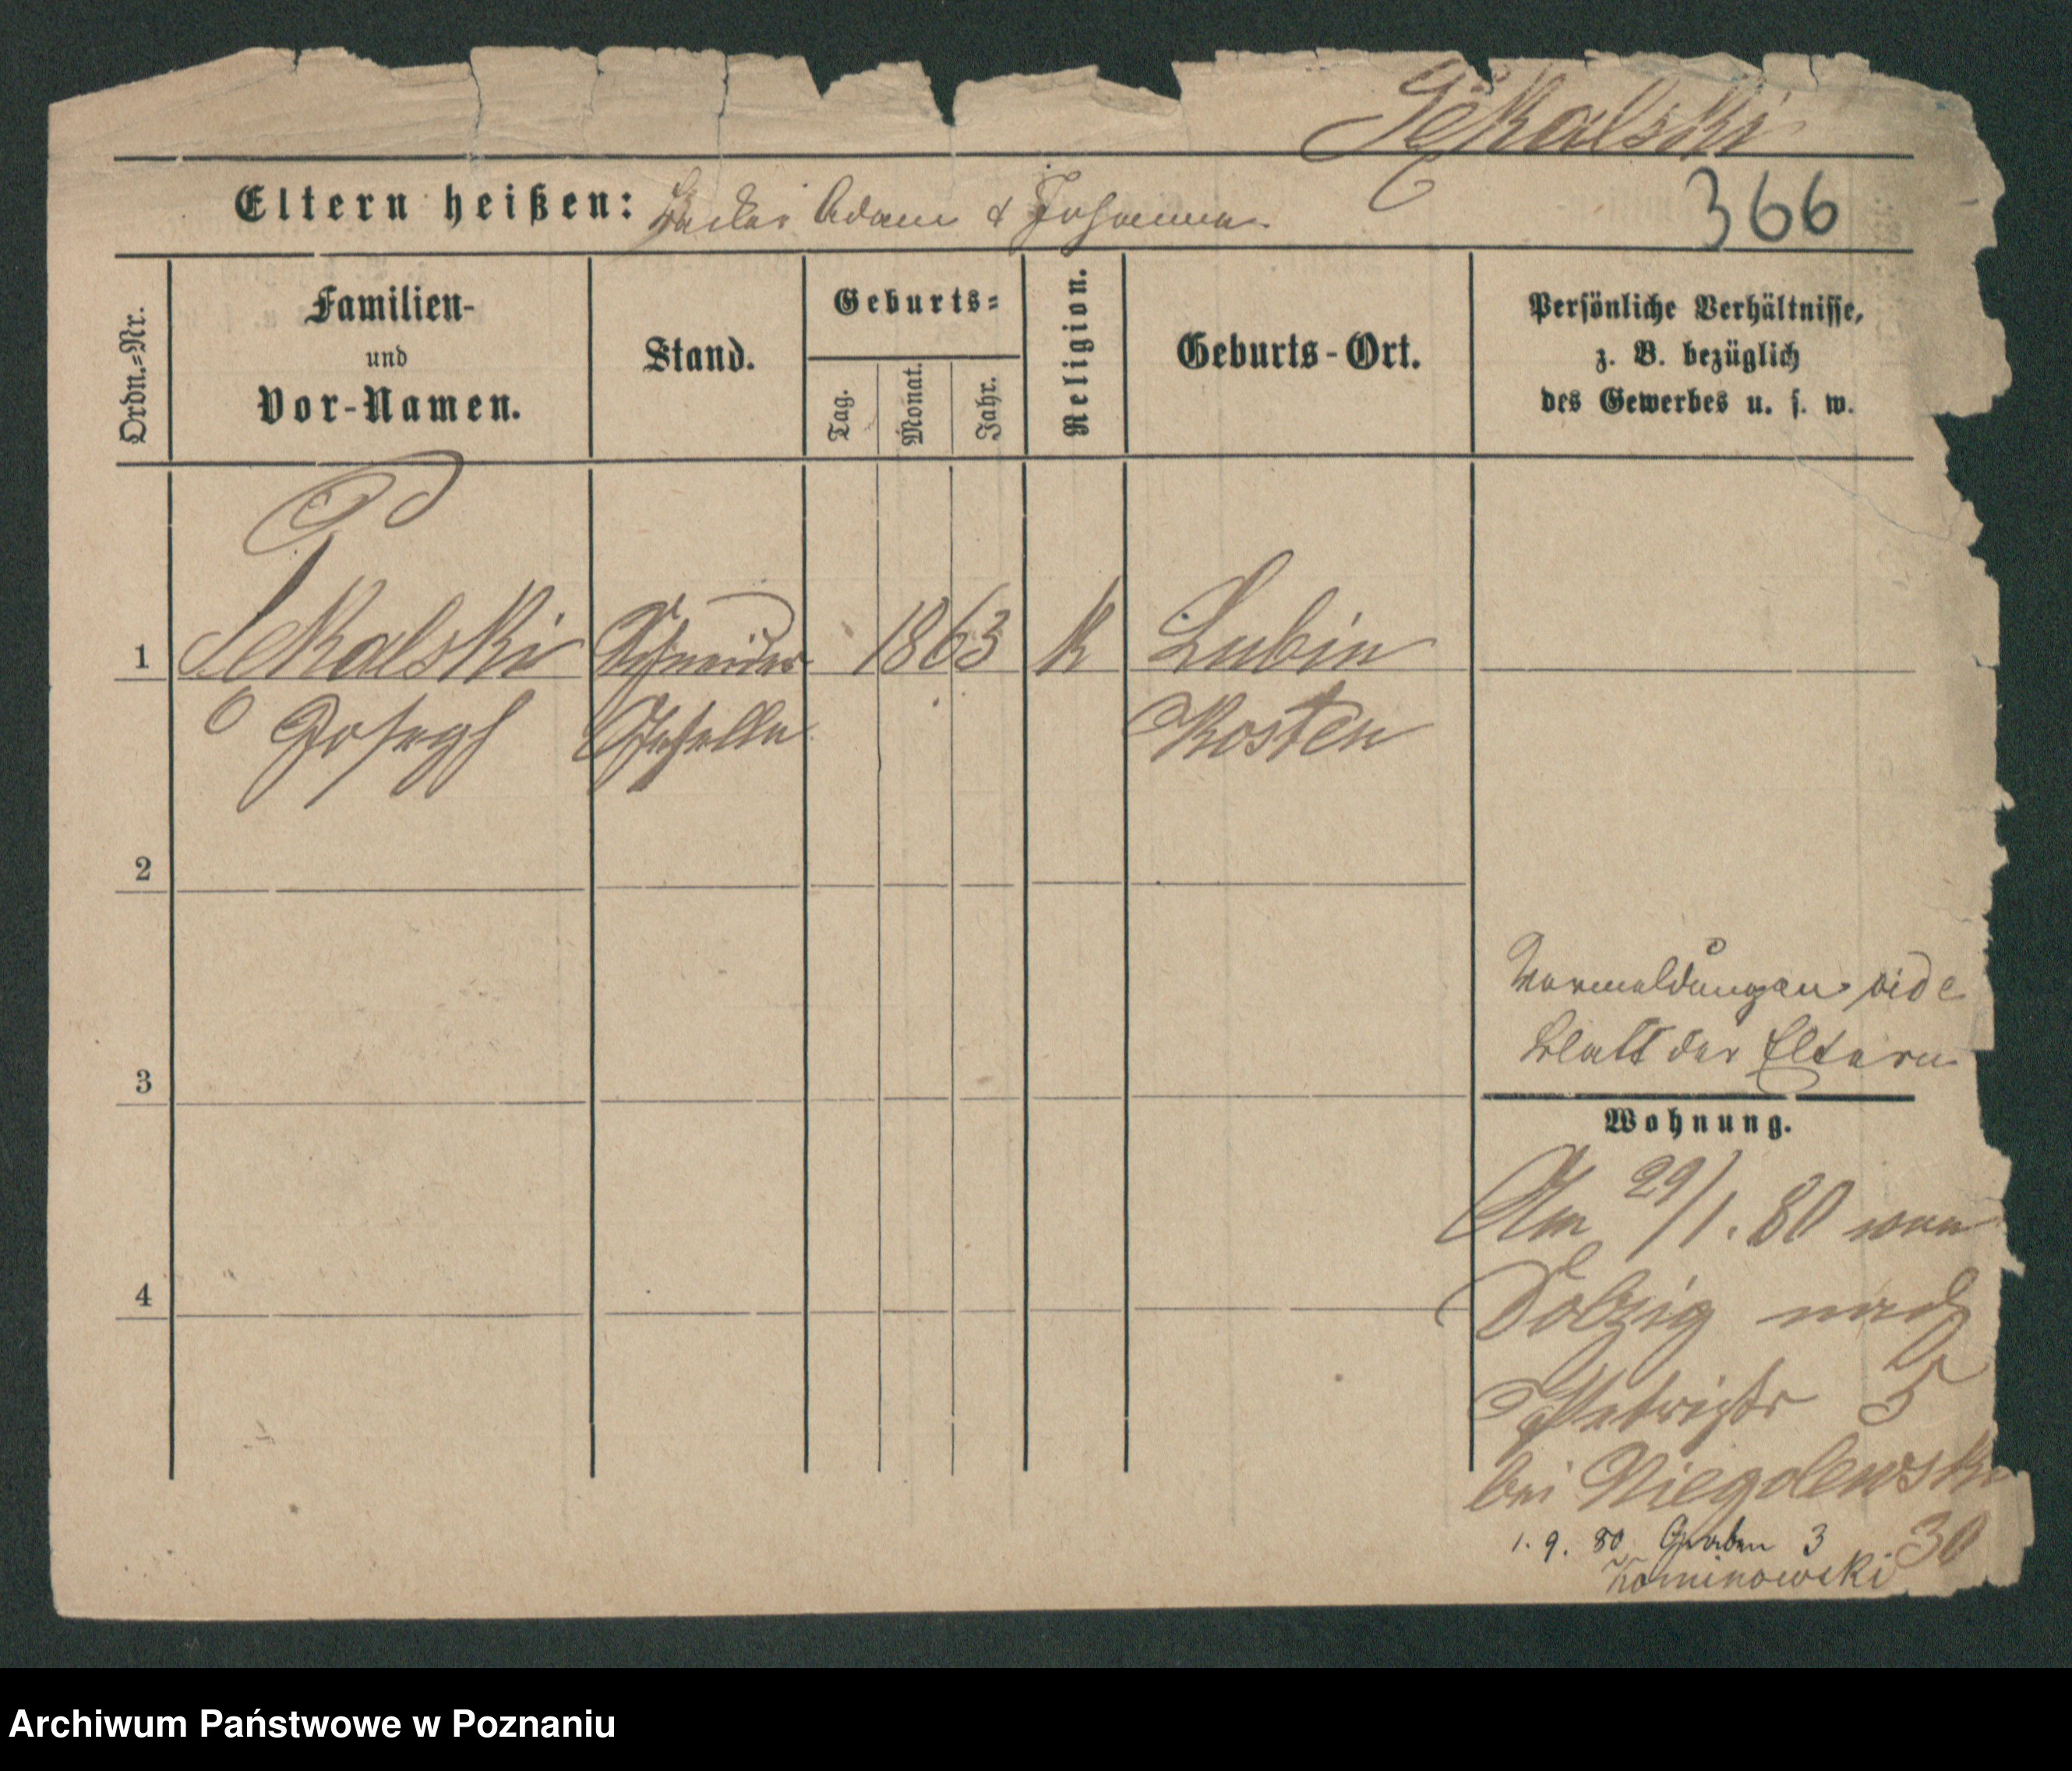 Sekalski
366
Eltern heißen: Bäcker Adam & Johanna
Ordn.=Nr.
Familien-
und
Vor-Namen.
Stand.
Geburts=
Tag.
Monat.
Jahr.
Religion.
Geburts-Ort.
Persönliche Verhältnisse,
z. B. bezüglich
des Gewerbes u. s. w.
1 Sekalski Schneider 1863 k Lubin
Joseph Geselle Kosten
2
3
4
Vormeldungen vide
Blatt der Eltern
Wohnung.
Am 29/1. 80 von
Dolzig nach
5
bei Niegolewski
30
1. 9. 80 Graben 3
Kominowski
Archiwum Państwowe w Poznaniu